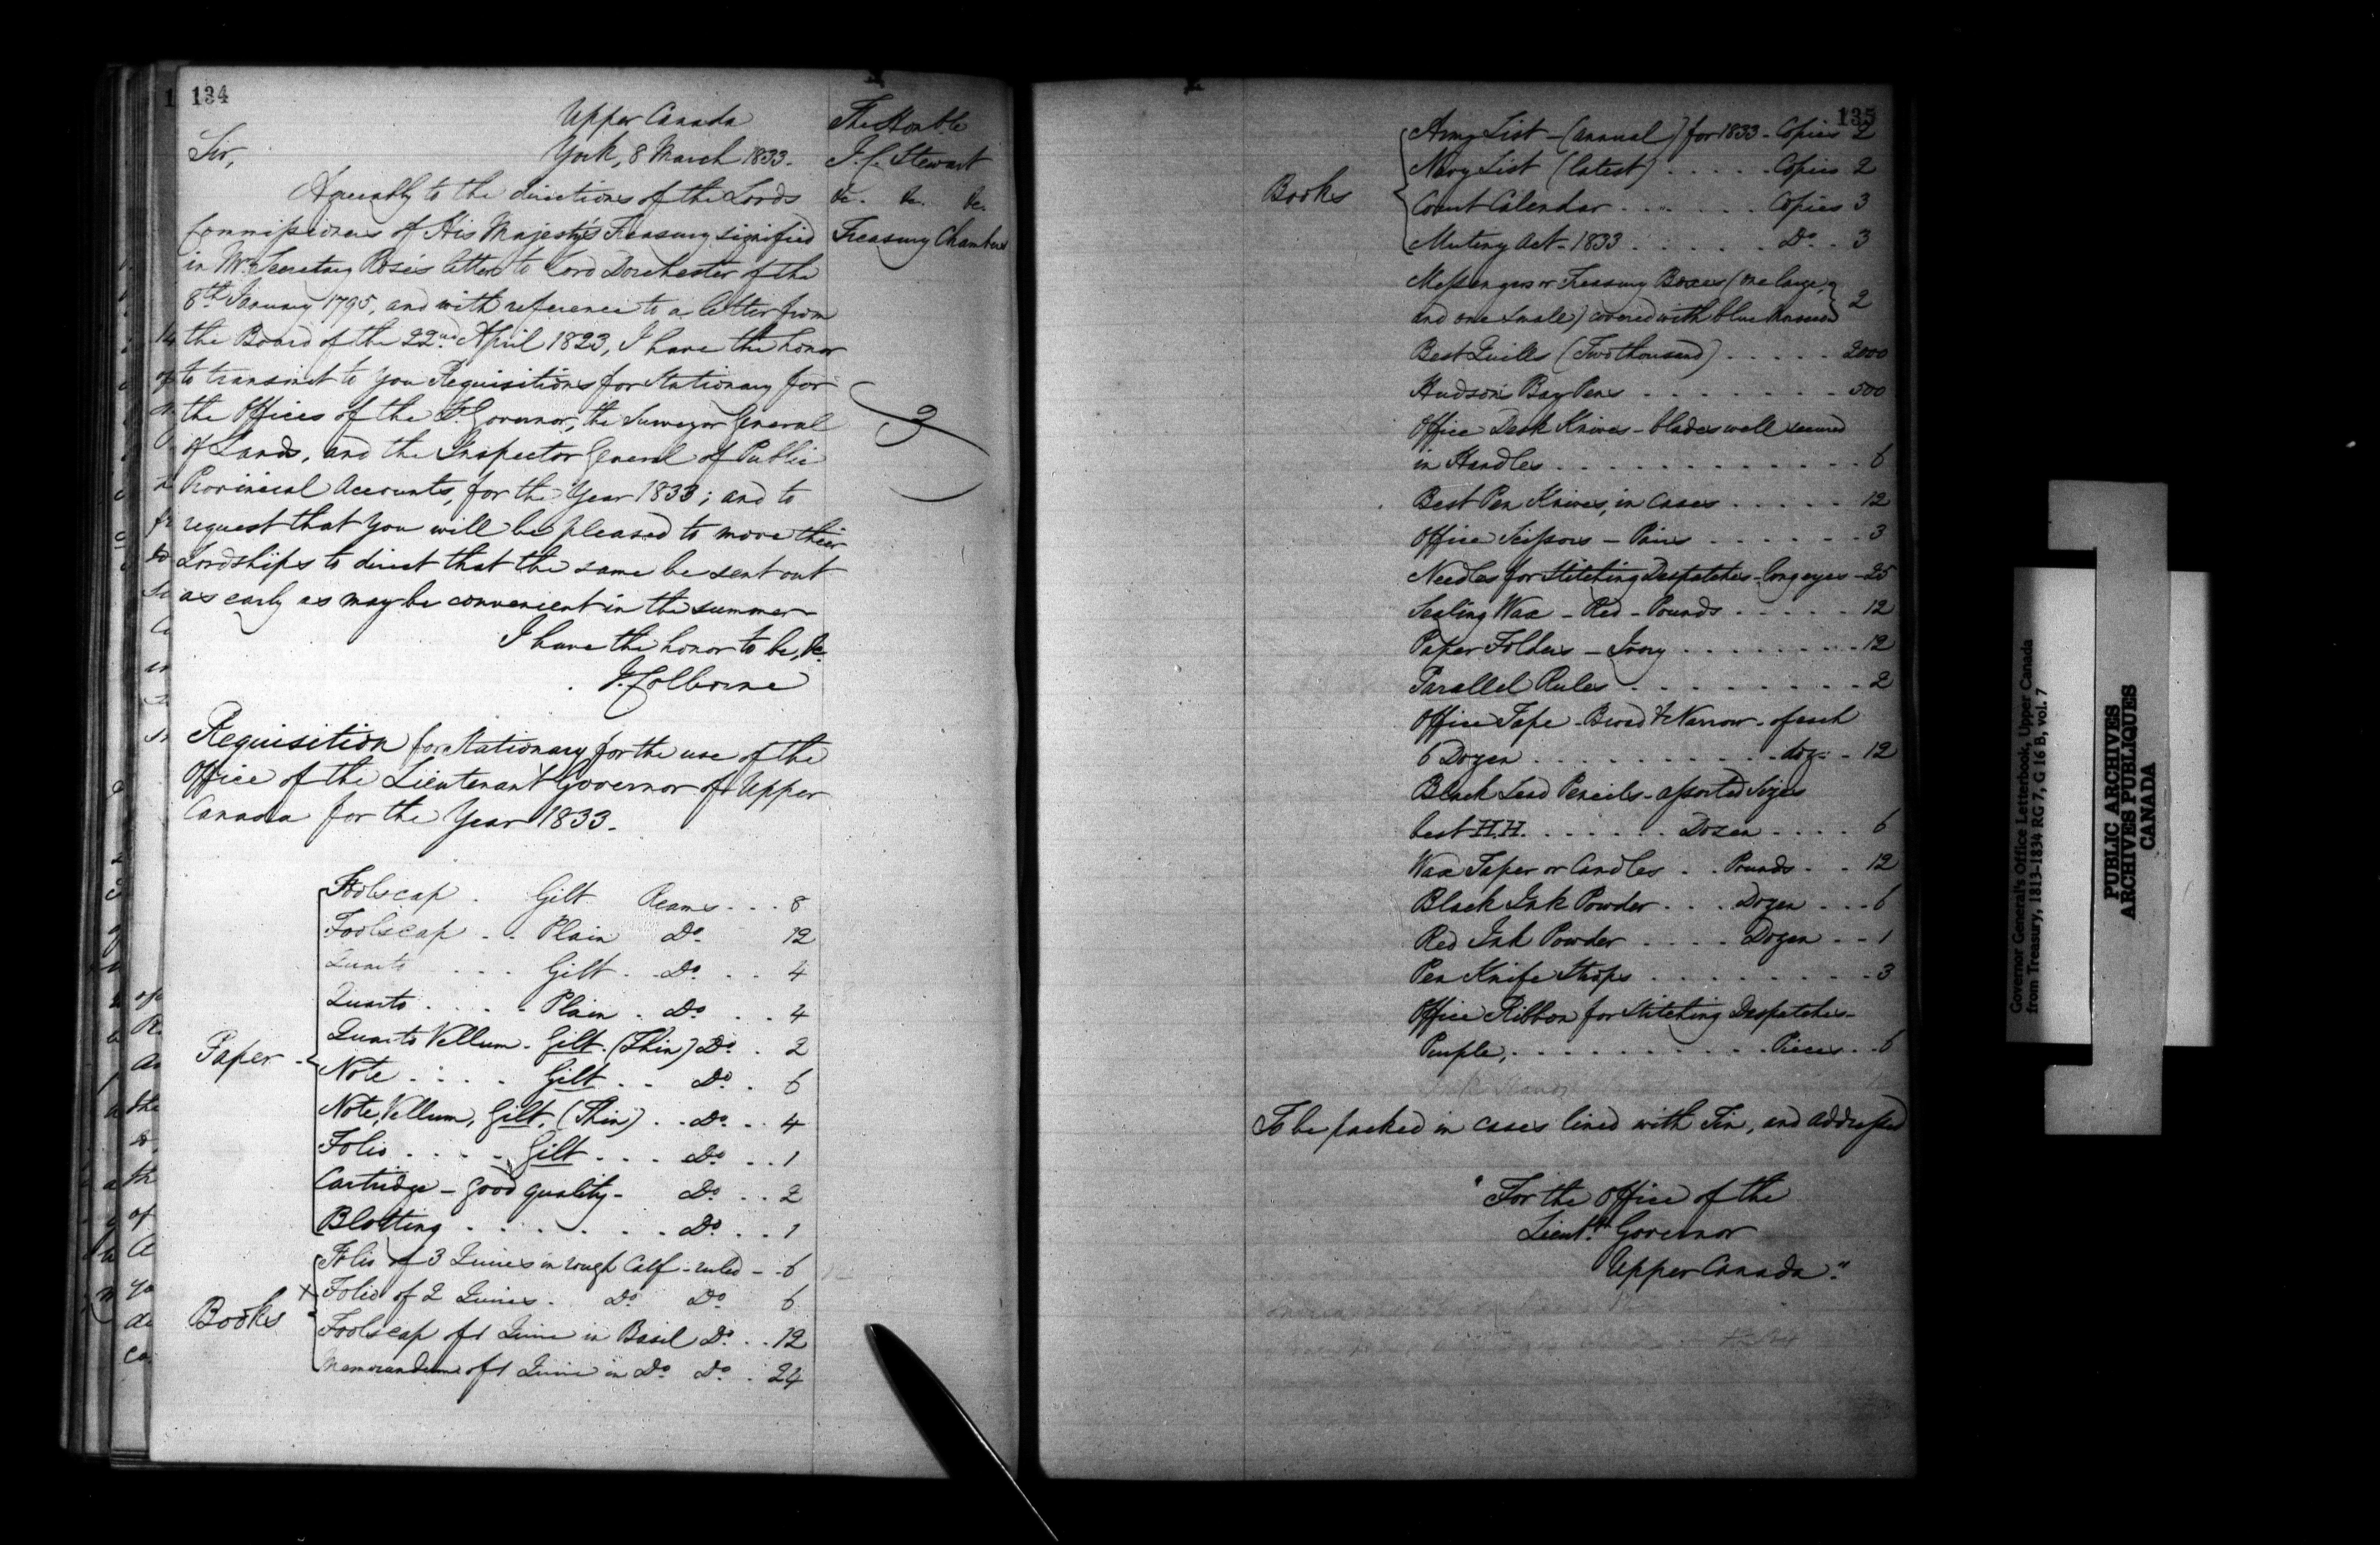 134
Upper Canada
York, 8 March 1833.
Sir,
Agreeably to the directions of the Lords
Commissioners of His Majesty's Treasury signified
in Mr. Secretary Rose's letter to Lord Dorchester of the
8th January 1795, and with reference to a letter from
the Board of the 22nd April 1823, I have the honor
to transmit to you Requisitions for Stationary for
the Offices of the Lt. Governor, the Surveyor General
of Lands, and the Inspector General of Public
Provincial Accounts, for the Year 1833; and to
request that you will be pleased to move their
Lordships to direct that the same be sent out
as early as may be convenient in the summer
I have the honor to be, &c.
J. Colborne
The Honble
J. C. Stewart
&c. &c. &c.
Treasury Chambers
3
Requisition for Stationary for the use of the
Office of the Lieutenant Governor of Upper
Canada for the Year 1833.
Paper
Foolscap . Gilt Reams . . . 8
Foolscap . . Plain Do. 12
Quarto . . . Gilt . . Do. . . 4
Quarto . . . . Plain . Do. . . 4
Quarto Vellum . Gilt . (Thin) Do. . 2
Note . . . . Gilt . . Do. . 6
Note, Vellum, Gilt, (Thin) . . Do. . . 4
Folio . . . . Gilt . . . Do. . . 1
Cartridge - good quality - Do. . . 2
Blotting . . . . . . . Do. . . 1
Books
Folio of 3 Quires in rough Calf - ruled - . 6
x Folio of 2 Quires . Do. Do. 6
Foolscap of 1 Quire in Basil Do. . . 12
Memorandum of 1 Quire in Do. Do. . 24
135
Books
Army List - (annual) for 1833 - Copies 2
Navy List (latest) . . . . . Copies 2
Court Calendar . . . . . . Copies 3
Mutiny Act - 1833 . . . . . Do. . 3
Messengers or Treasury Boxes (one large,
and one small) covered with blue 2
Best Quills (Two thousand) . . . . . 2000
Hudson's Bay Pens . . . . . . . 500
Office Desk Knives - blades well secured
in Handles . . . . . . . . . . . . 6
Best Pen Knives, in Cases . . . . . 12
Office Scissors - Pairs . . . . . . 3
Needles for Stitching Despatches - long eyes - 25
Sealing Wax - Red - Pounds . . . . . 12
Paper Folders - Ivory . . . . . . . . 12
Parallel Rules . . . . . . . . . 2
Office Tape - Broad & Narrow - of each
6 Dozen . . . . . . . . . . doz. - 12
Black Lead Pencils - assorted sizes
best H.H. . . . . . . Dozen . . . . 6
Wax Taper or Candles . . Pounds . . 12
Black Ink Powder . . . Dozen . . . 6
Red Ink Powder . . . . Dozen . . 1
Pen Knife Strops . . . . . . . . . 3
Office Ribbon for Stitching Despatches -
Purple, . . . . . . . . . . . Pieces . . 6
To be packed in cases lined with Tin, and addressed
"For the Office of the
Lieut. Governor
Upper Canada."
Governor General's Office Letterbook, Upper Canada
from Treasury, 1813-1834 RG 7, G 16 B, vol. 7
PUBLIC ARCHIVES
ARCHIVES PUBLIQUES
CANADA